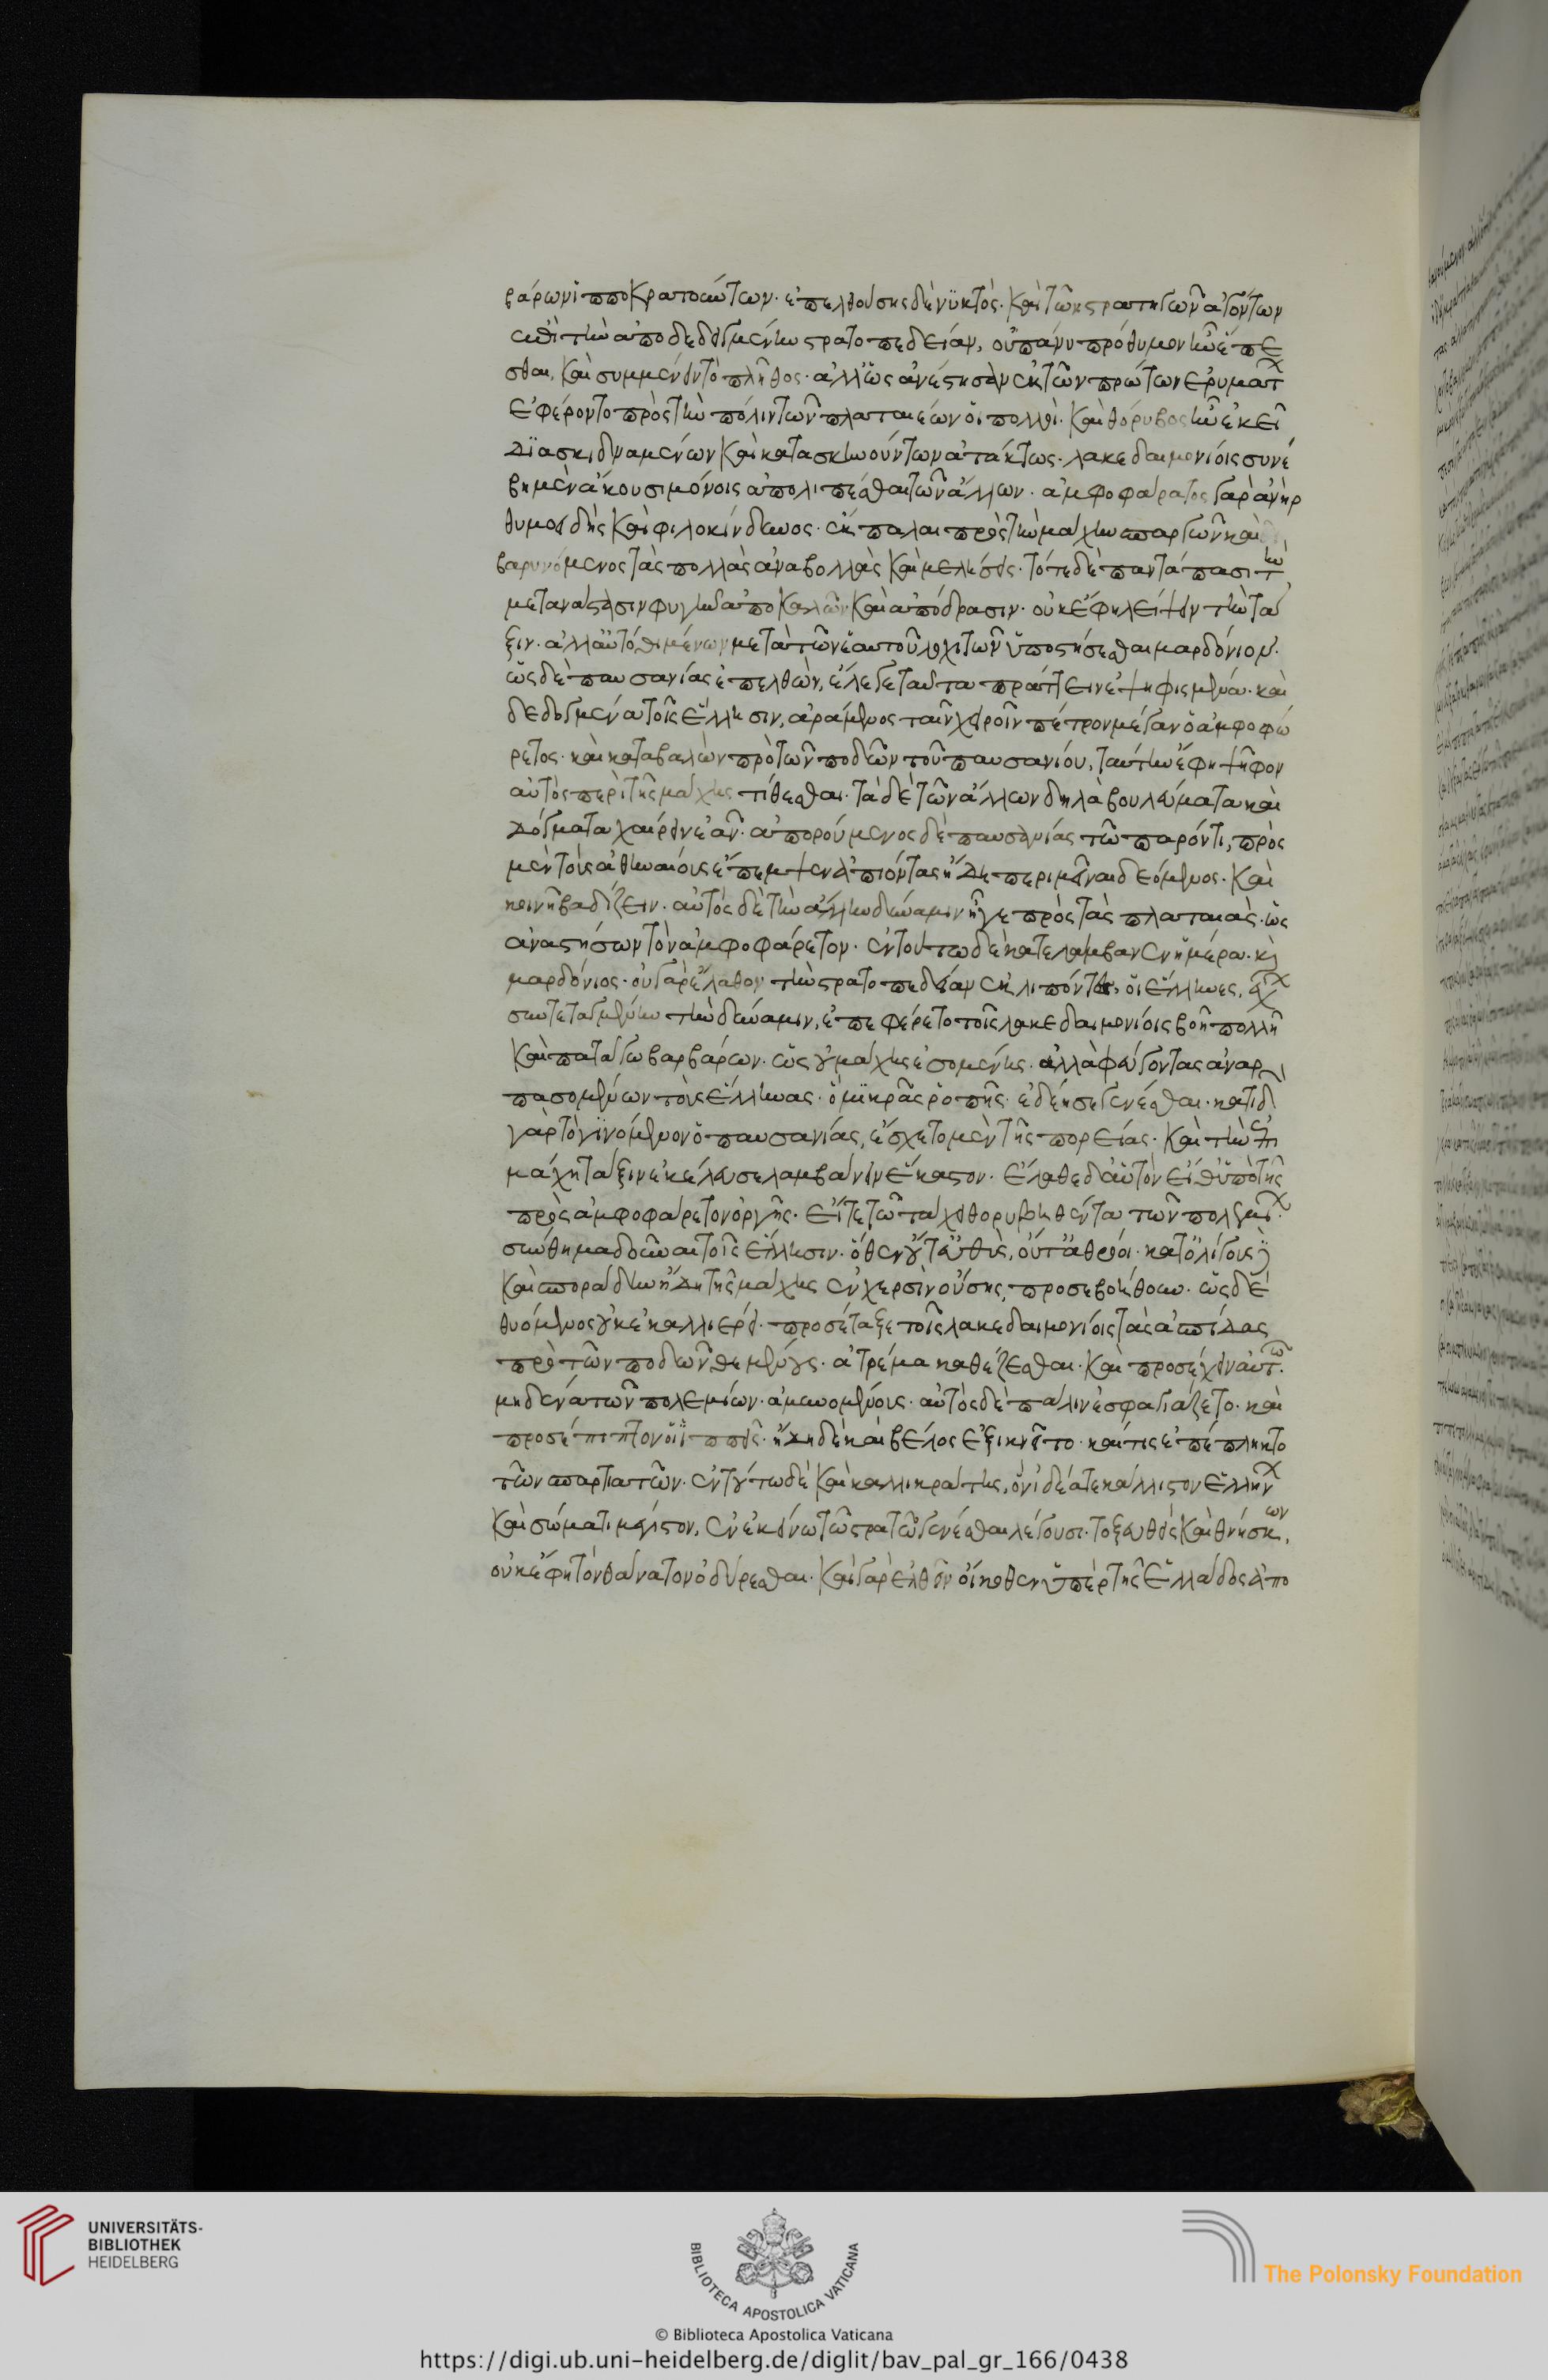 βάρων ἱπποκρατούντων. ἐπελθούσης δὲ νυκτὸς. καὶ τῶν στρατηγῶν ἀγόντων
ἐπὶ τὴν ἀποδεδειγμένην στρατοπεδείαν, οὐ πάνυ πρόθυμον ἦν ἕπε
σθαι, καὶ συμμένειν τὸ πλῆθος. ἀλλ' ὡς ἀνέστησαν ἐκ τῶν πρώτων ἐρυμάτ
ἐφέροντο πρὸς τὴν πόλιν τῶν πλαταιέων οἱ πολλοὶ. καὶ θόρυβος ἦν ἐκεῖ
διασκιδναμένων καὶ κατασκηνούντων ἀτάκτως. λακεδαιμονίοις συνέ
βη μὲν ἄκουσι μόνοις ἀπολιπέσθαι τῶν ἄλλων. ἀμφοφάρατος γὰρ ἀνὴρ
θυμοειδὴς καὶ φιλοκίνδυνος. ἐκ παλαι πρὸς τὴν μάχην σπαργῶν καὶ
βαρυνόμενος τὰς πολλὰς ἀναβολὰς καὶ μελήσεις. τότε δὲ παντάπασι τὴν
μετανάστασιν φυγὴν ἀποκαλῶν καὶ ἀπόδρασιν. οὐκ ἔφη λείψειν τὴν τά
ξιν. ἀλλ' αὐτόθι μένων μετὰ τῶν ἑαυτοῦ λοχιτῶν ὑποστήσεσθαι μαρδόνιον.
ὡς δὲ παυσανίας ἐπελθὼν, ἔλεγε ταῦτα πράττειν ἐψηφισμένα. καὶ
δεδογμένα τοῖς ἕλλησιν, ἀράμενος ταῖν χεροῖν πέτρον μέγαν ὁ ἀμφοφά
ρετος. καὶ καταβαλὼν πρὸ τῶν ποδῶν τοῦ παυσανίου, ταύτην ἔφη ψῆφον
αὐτὸς περὶ τῆς μάχης τίθεσθαι. τὰ δὲ τῶν ἄλλων δηλὰ βουλεύματα καὶ
δόγματα χαίρειν ἐᾶν. ἀπορούμενος δὲ παυσανίας τῷ παρόντι, πρὸς
μὲν τοὺς ἀθηναίους ἔπεμψεν ἀπιόντας ἤδη περιμεῖναι δεόμενος. καὶ
κοινῇ βαδίζειν. αὐτὸς δὲ τὴν ἄλλην δύναμιν ἦγε πρὸς τὰς πλαταιὰς. ὡς
ἀναστήσων τὸν ἀμφοφάρετον. ἐν τούτῳ δὲ κατελάμβανεν ἡμέρα. κὶ
μαρδόνιος. οὐ γὰρ ἔλαθον τὴν στρατοπεδείαν ἐκλιπόντες οἱ ἕλληνες, ἔχ
συντεταγμένην τὴν δύναμιν, ἐπεφέρετο τοῖς λακεδαιμονίοις βοῇ πολλῇ
καὶ πατάγῳ βαρβάρων. ὡς οὐ μάχης ἐσομένης. ἀλλὰ φεύγοντας ἀναρ
πασομένων τοὺς ἕλληνας. ὃ μικρᾶς ῥοπῆς ἐδέησε γενέσθαι. κατιδ
γὰρ τὸ γινόμενον ὁ παυσανίας, ἔσχετο μὲν τῆς πορείας. καὶ τὴν ἐπὶ
μάχῃ τάξιν ἐκέλευσε λαμβάνειν ἕκαστον. ἔλαθε δ' αὐτὸν εἴθ' ὑπὸ τῆς
πρὸς ἀμφοφάρετον ὀργῆς. εἴτε τῷ τάχει θορυβηθέντα τῶν πολεμί.
σύνθημα δοῦναι τοῖς ἕλλησιν. ὅθεν οὔτ' εὐθὺς, οὔτ' ἀθρόοι. κατ' ὀλίγους
καὶ σποράδην ἤδη τῆς μάχης ἐν χερσὶν οὔσης, προσεβοήθουν. ὡς δὲ
θυόμενος οὐκ ἐκαλλιέρει. προσέταξε τοῖς λακεδαιμονίοις τὰς ἀσπίδας
πρὸ τῶν ποδῶν θεμένους. ἀτρέμα καθέζεσθαι. καὶ προσέχειν αὐτῷ.
μηδένα τῶν πολεμίων. ἀμυνομένους. αὐτὸς δὲ πάλιν ἐσφαγιάζετο. καὶ
προσέπιπτον οἱ ἱππεῖς. ἤδη δὲ καὶ βέλος ἐξικνεῖτο. καί τις ἐπέπληκτο
τῶν σπαρτιατῶν. ἐν τούτῳ δὲ καὶ καλλικράτης, ὃν ἰδέᾳ τε κάλλιστον ἑλλήν
καὶ σώματι μέγιστον, ἐν ἐκείνῳ τῷ στρατῷ γενέσθαι λέγουσι. τοξευθεὶς καὶ θνήσκων,
οὐκ ἔφη τὸν θάνατον ὀδύρεσθαι. καὶ γὰρ ἐλθεῖν οἴκοθεν ὑπὲρ τῆς ἑλλάδος ἀπο
UNIVERSITÄTS-
BIBLIOTHEK
HEIDELBERG
BIBLIOTECA APOSTOLICA VATICANA
The Polonsky Foundation
© Biblioteca Apostolica Vaticana
https://digi.ub.uni-heidelberg.de/diglit/bav_pal_gr_166/0438